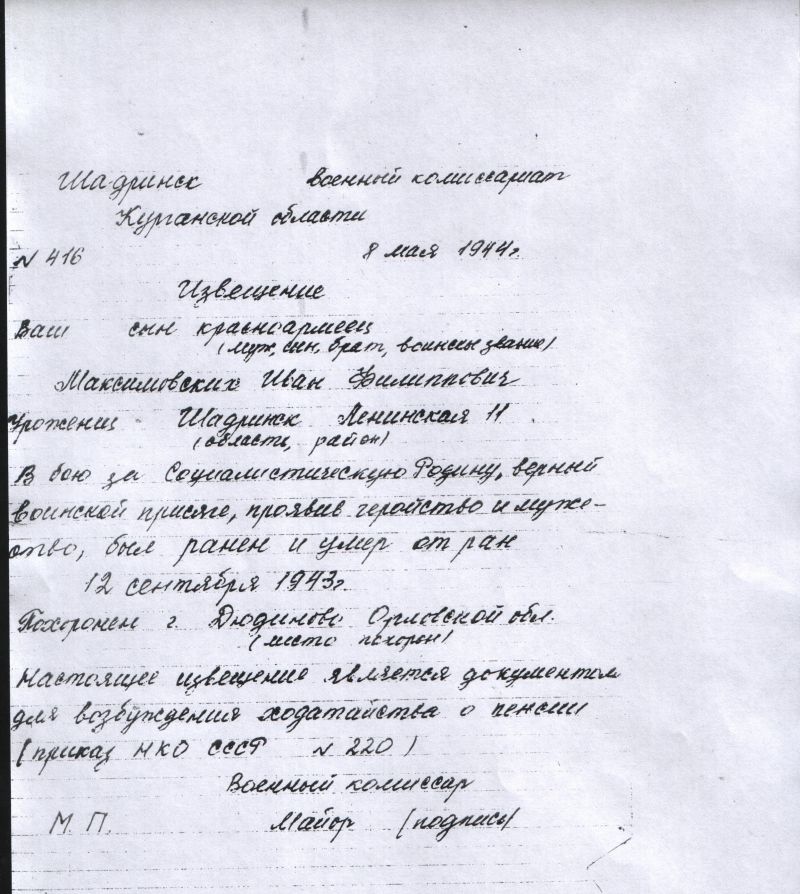 Шадринск военный комиссариат
Курганской области
N 416 8 мая 1944г.
Извещение
Ваш сын красноармеец
(муж, сын, брат, воинск звание)
Максимовских Иван Филиппович
Уроженец Шадринск Ленинская 11
(область, район)
В бою за Социалистическую Родину, верный
воинской присяге, проявив геройство и муже-
ство, был ранен и умер от ран
12 сентября 1943г.
Похоронен г. Дюдиново Орловской обл.
(место похорон)
Настоящее извещение является документом
для возбуждения ходатайства о пенсии
(приказ НКО СССР N 220)
Военный комиссар
М. П. Майор (подпись)